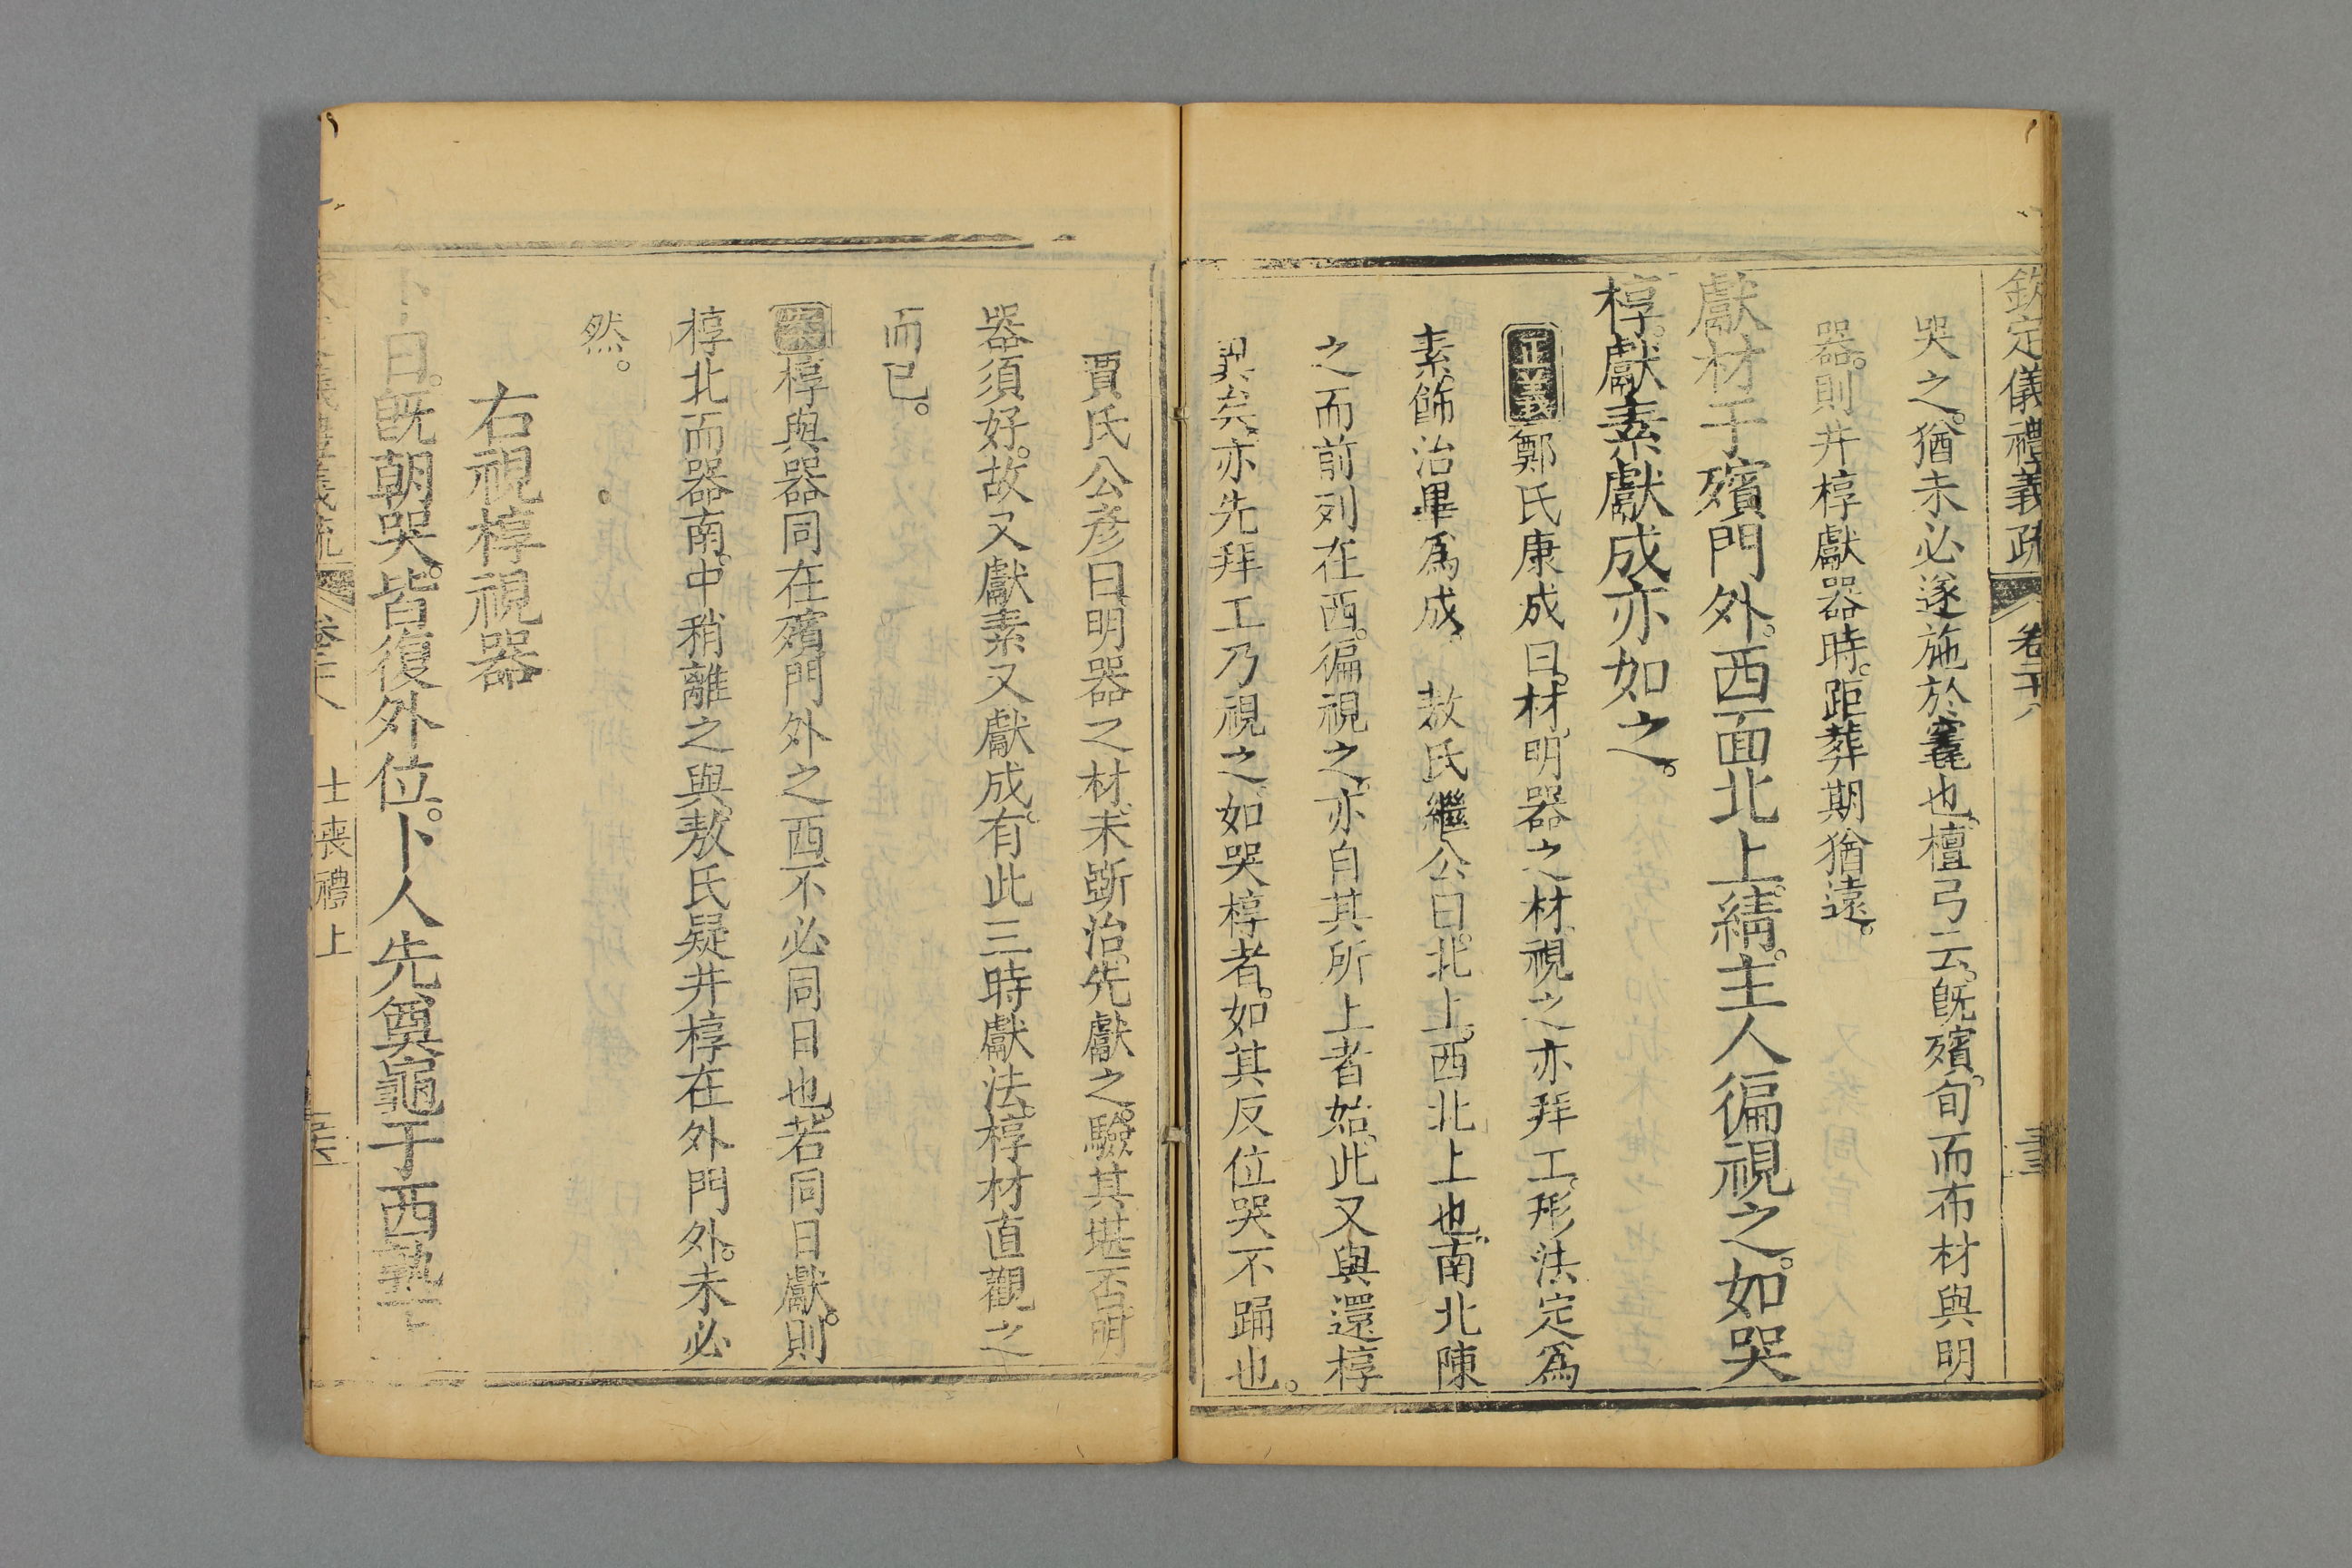 欽定儀禮義疏 卷二十八
哭之。猶未必遂施於窆也。檀弓云。旣殯。旬而布材與明
器。則井椁獻器時。距葬期猶遠。
獻材于殯門外。西面北上。綪。主人徧視之。如哭
椁。獻素獻成亦如之。
正義鄭氏康成曰。材。明器之材。視之亦拜工。形法定爲
素。飾治畢爲成。 敖氏繼公曰。北上。西北上也。南北陳
之而前列在西。徧視之。亦自其所上者始。此又與還椁
異矣。亦先拜工乃視之。如哭椁者。如其反位哭不踊也。
賈氏公彥曰。明器之材。未斲治。先獻之。驗其堪否。明
器須好。故又獻素又獻成。有此三時獻法。椁材直觀之
而已。
案椁與器同在殯門外之西。不必同日也。若同日獻。則
椁北而器南。中稍離之與。敖氏疑井椁在外門外。未必
然。
右視椁視器
卜日。旣朝哭。皆復外位。卜人先奠龜于西塾
義禮義疏 卷二十八 士喪禮上